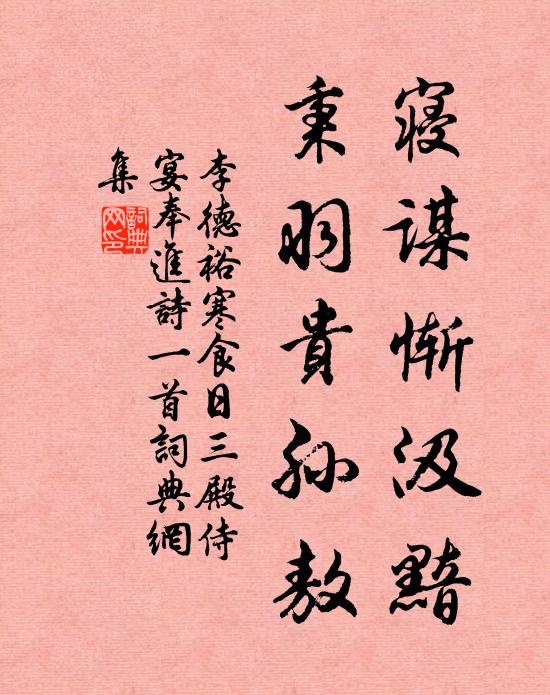 寝謀慚汲黯
秉羽貴孫敖
李德裕寒食日三殿侍
宴奉進詩一首詞典網
集
詞典網印